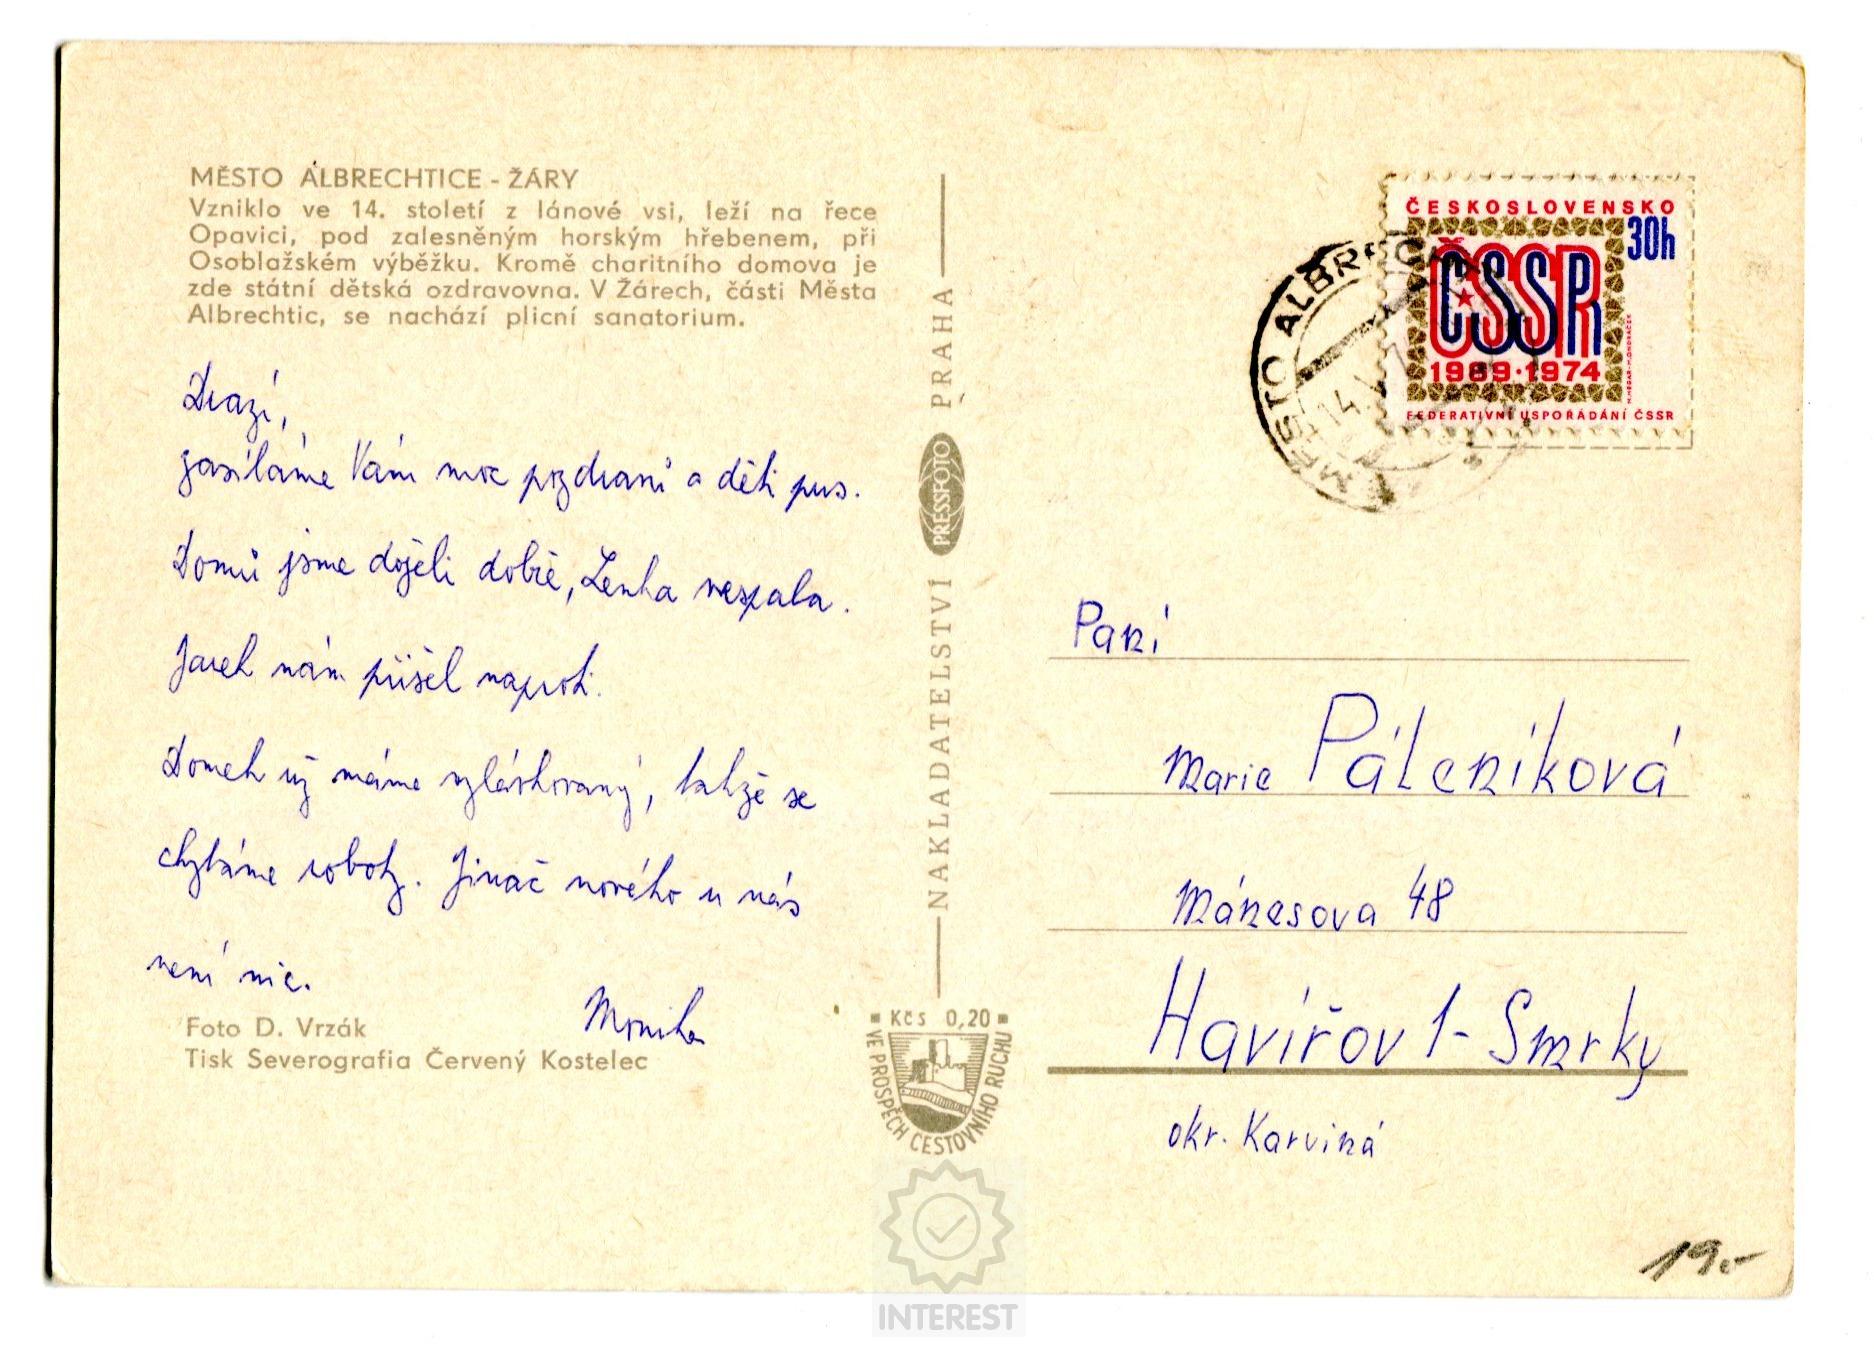 MĚSTO ALBRECHTICE - ŽÁRY
Vzniklo ve 14. století z lánové vsi, leží na řece
Opavici, pod zalesněným horským hřebenem, při
Osoblažském výběžku. Kromě charitního domova je
zde státní dětská ozdravovna. V Žárech, části Města
Albrechtic, se nachází plicní sanatorium.
Drazí,
zasíláme Vám moc pozdravů a děti pus.
Domů jsme dojeli dobře, Lenka nespala.
Jarek nám přišel naproti.
Domek už máme vyláskovaný, takže se
chytáme roboty. Jinač nového u nás
není nic.
Monika
Foto D. Vrzák
Tisk Severografia Červený Kostelec
NAKLADATELSTVÍ PRESSFOTO PRAHA
Kčs 0,20
VE PROSPĚCH CESTOVNÍHO RUCHU
ČESKOSLOVENSKO
30h
ČSSR
1969·1974
FEDERATIVNÍ USPOŘÁDÁNÍ ČSSR
MĚSTO ALBRECHTICE
14. V.
Paní
Marie Páleníková
Mánesova 48
Havířov 1 - Smrky
okr. Karviná
19.-
INTEREST